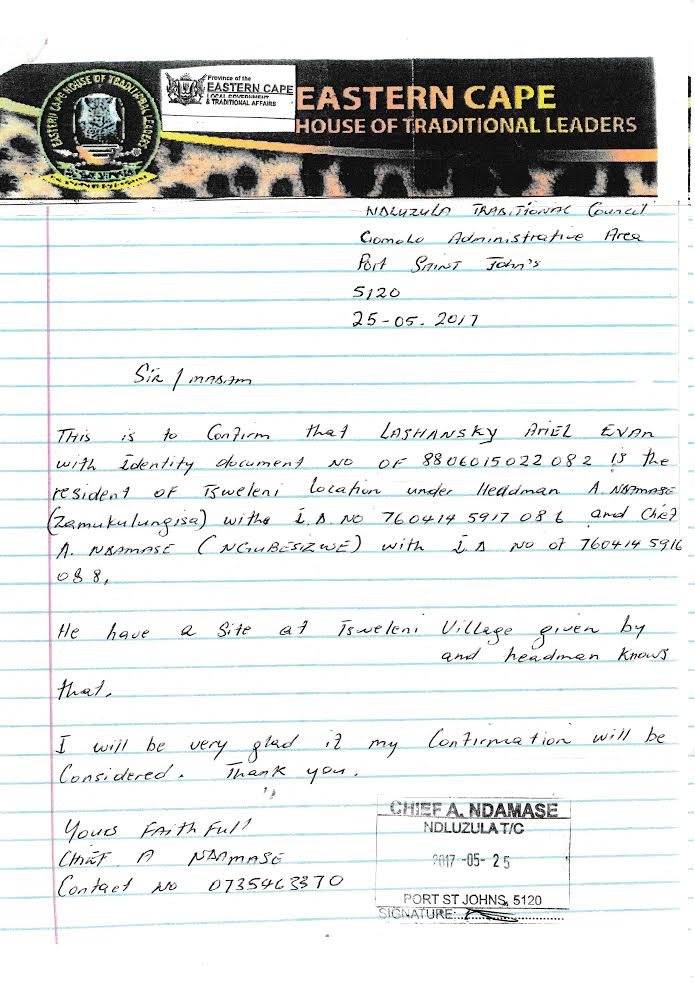 EASTERN CAPE HOUSE OF TRADITIONAL LEADERS
Province of the
EASTERN CAPE
LOCAL GOVERNMENT
& TRADITIONAL AFFAIRS
EASTERN CAPE
HOUSE OF TRADITIONAL LEADERS
NDLUZULA TRADITIONAL Council
Gomolo Administrative Area
Port SAINT John's
5120
25-05-2017
Sir / MADAM
THis is to Confirm that LASHANSKY ARIEL EVAN
with Identity document NO OF 8806015022082 is the
resident OF Tsweleni Location under Headman A NDAMASE
(Zamukulungisa) witha I.D NO 760414 5917 086 and Chief
A. NDAMASE (NGUBESIZWE) with I.D NO of 760414 5916
088,
He have a Site at Tsweleni Village given by
and headman knows
that.
I will be very glad if my Confirmation will be
Considered. Thank you.
Yours FaithFull
CHIEF A NDAMASE
Contact NO 0735463370
CHIEF A. NDAMASE
NDLUZULA T/C
2017 -05- 25
PORT ST JOHNS, 5120
SIGNATURE: